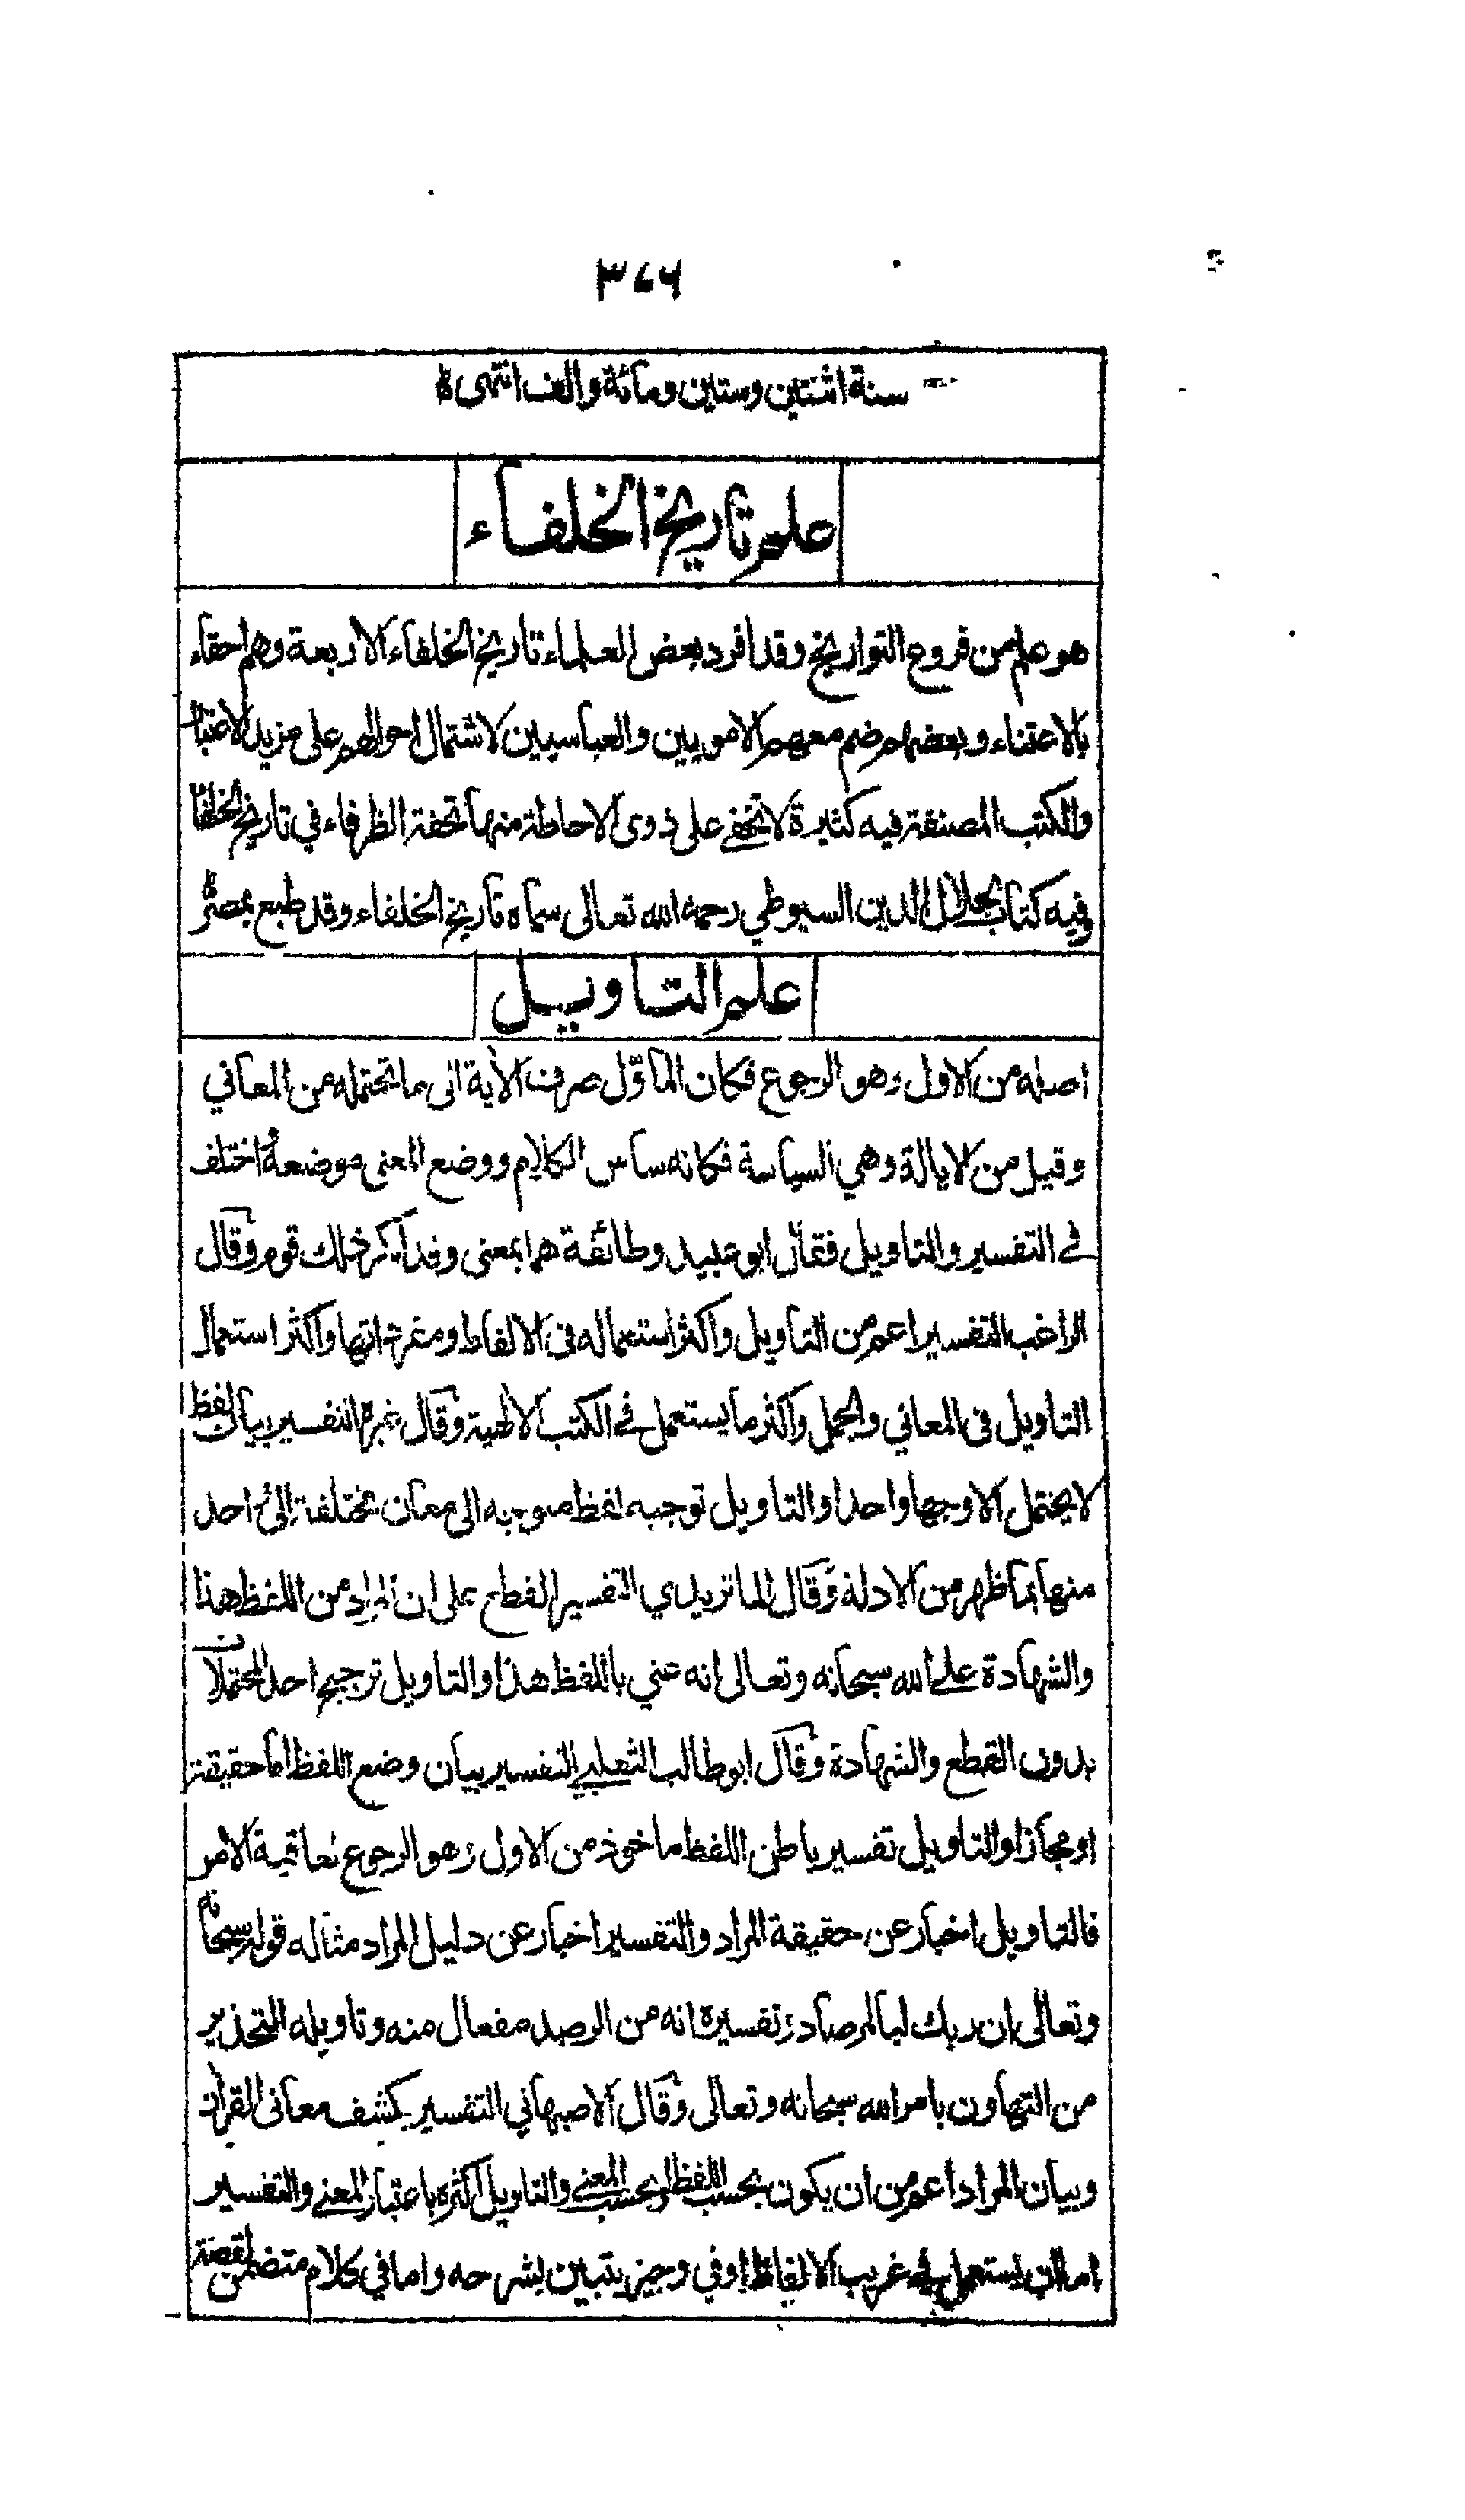 ٣٧٦
سنة اثنتين وستين ومائة والف انتهى
علم تاريخ الخلفاء
هو علم من فروع التواريخ وقد افرد بعض العلماء تاريخ الخلفاء الاربعة وهم احقاء
بالاعتناء وبعضهم ضم معهم الامويين والعباسيين لاشتمال احوالهم على مزيد الاعتبار
والكتب المصنفة فيه كثيرة لا تخفى على ذوي الاحاطة منها تحفة الظرفاء في تاريخ الخلفا
وفيه كتاب لجلال الدين السيوطي رحمه الله تعالى سماه تاريخ الخلفاء وقد طبع بمصر
علم التاويل
اصله من الاول وهو الرجوع فكان المأوّل صرف الأية الى ما تحتمله من المعاني
وقيل من الايالة وهي السياسة فكانه ساس الكلام ووضع المعنى موضعه اختلف
في التفسير والتاويل فقال ابو عبيد وطائفة هما بمعنى وقد انكر ذلك قوم وقال
الراغب التفسير اعم من التاويل واكثر استعماله في الالفاظ ومفرداتها واكثر استعمال
التاويل في المعاني والجمل واكثر ما يستعمل في الكتب الالهية وقال غيره التفسير بيان لفظ
لا يحتمل الا وجها واحدا والتاويل توجيه لفظ متوجه الى معان مختلفة الى واحد
منها بما ظهر من الادلة وقال الماتريدي التفسير القطع على ان المراد من اللفظ هذا
والشهادة على الله سبحانه وتعالى انه عني باللفظ هذا والتاويل ترجيح احد المحتملات
بدون القطع والشهادة وقال ابو طالب الثعلبي التفسير بيان وضع اللفظ اما حقيقة
او مجازا والتاويل تفسير باطن اللفظ ماخوذ من الاول وهو الرجوع لعاقبة الامر
فالتاويل اخبار عن حقيقة المراد والتفسير اخبار عن دليل المراد مثاله قوله سبحانه
وتعالى ان ربك لبالمرصاد وتفسيره انه من الرصد مفعال منه وتاويله التحذير
من التهاون بامر الله سبحانه وتعالى وقال الاصبهاني التفسير يكشف معاني القران
وبيان المراد اعم من ان يكون بحسب اللفظ او بحسب المعنى والتاويل اكثره باعتبار المعنى والتفسير
اما ان يستعمل في غريب الالفاظ او في وجيز يتبين بشرحه واما في كلام متضمن لقصة